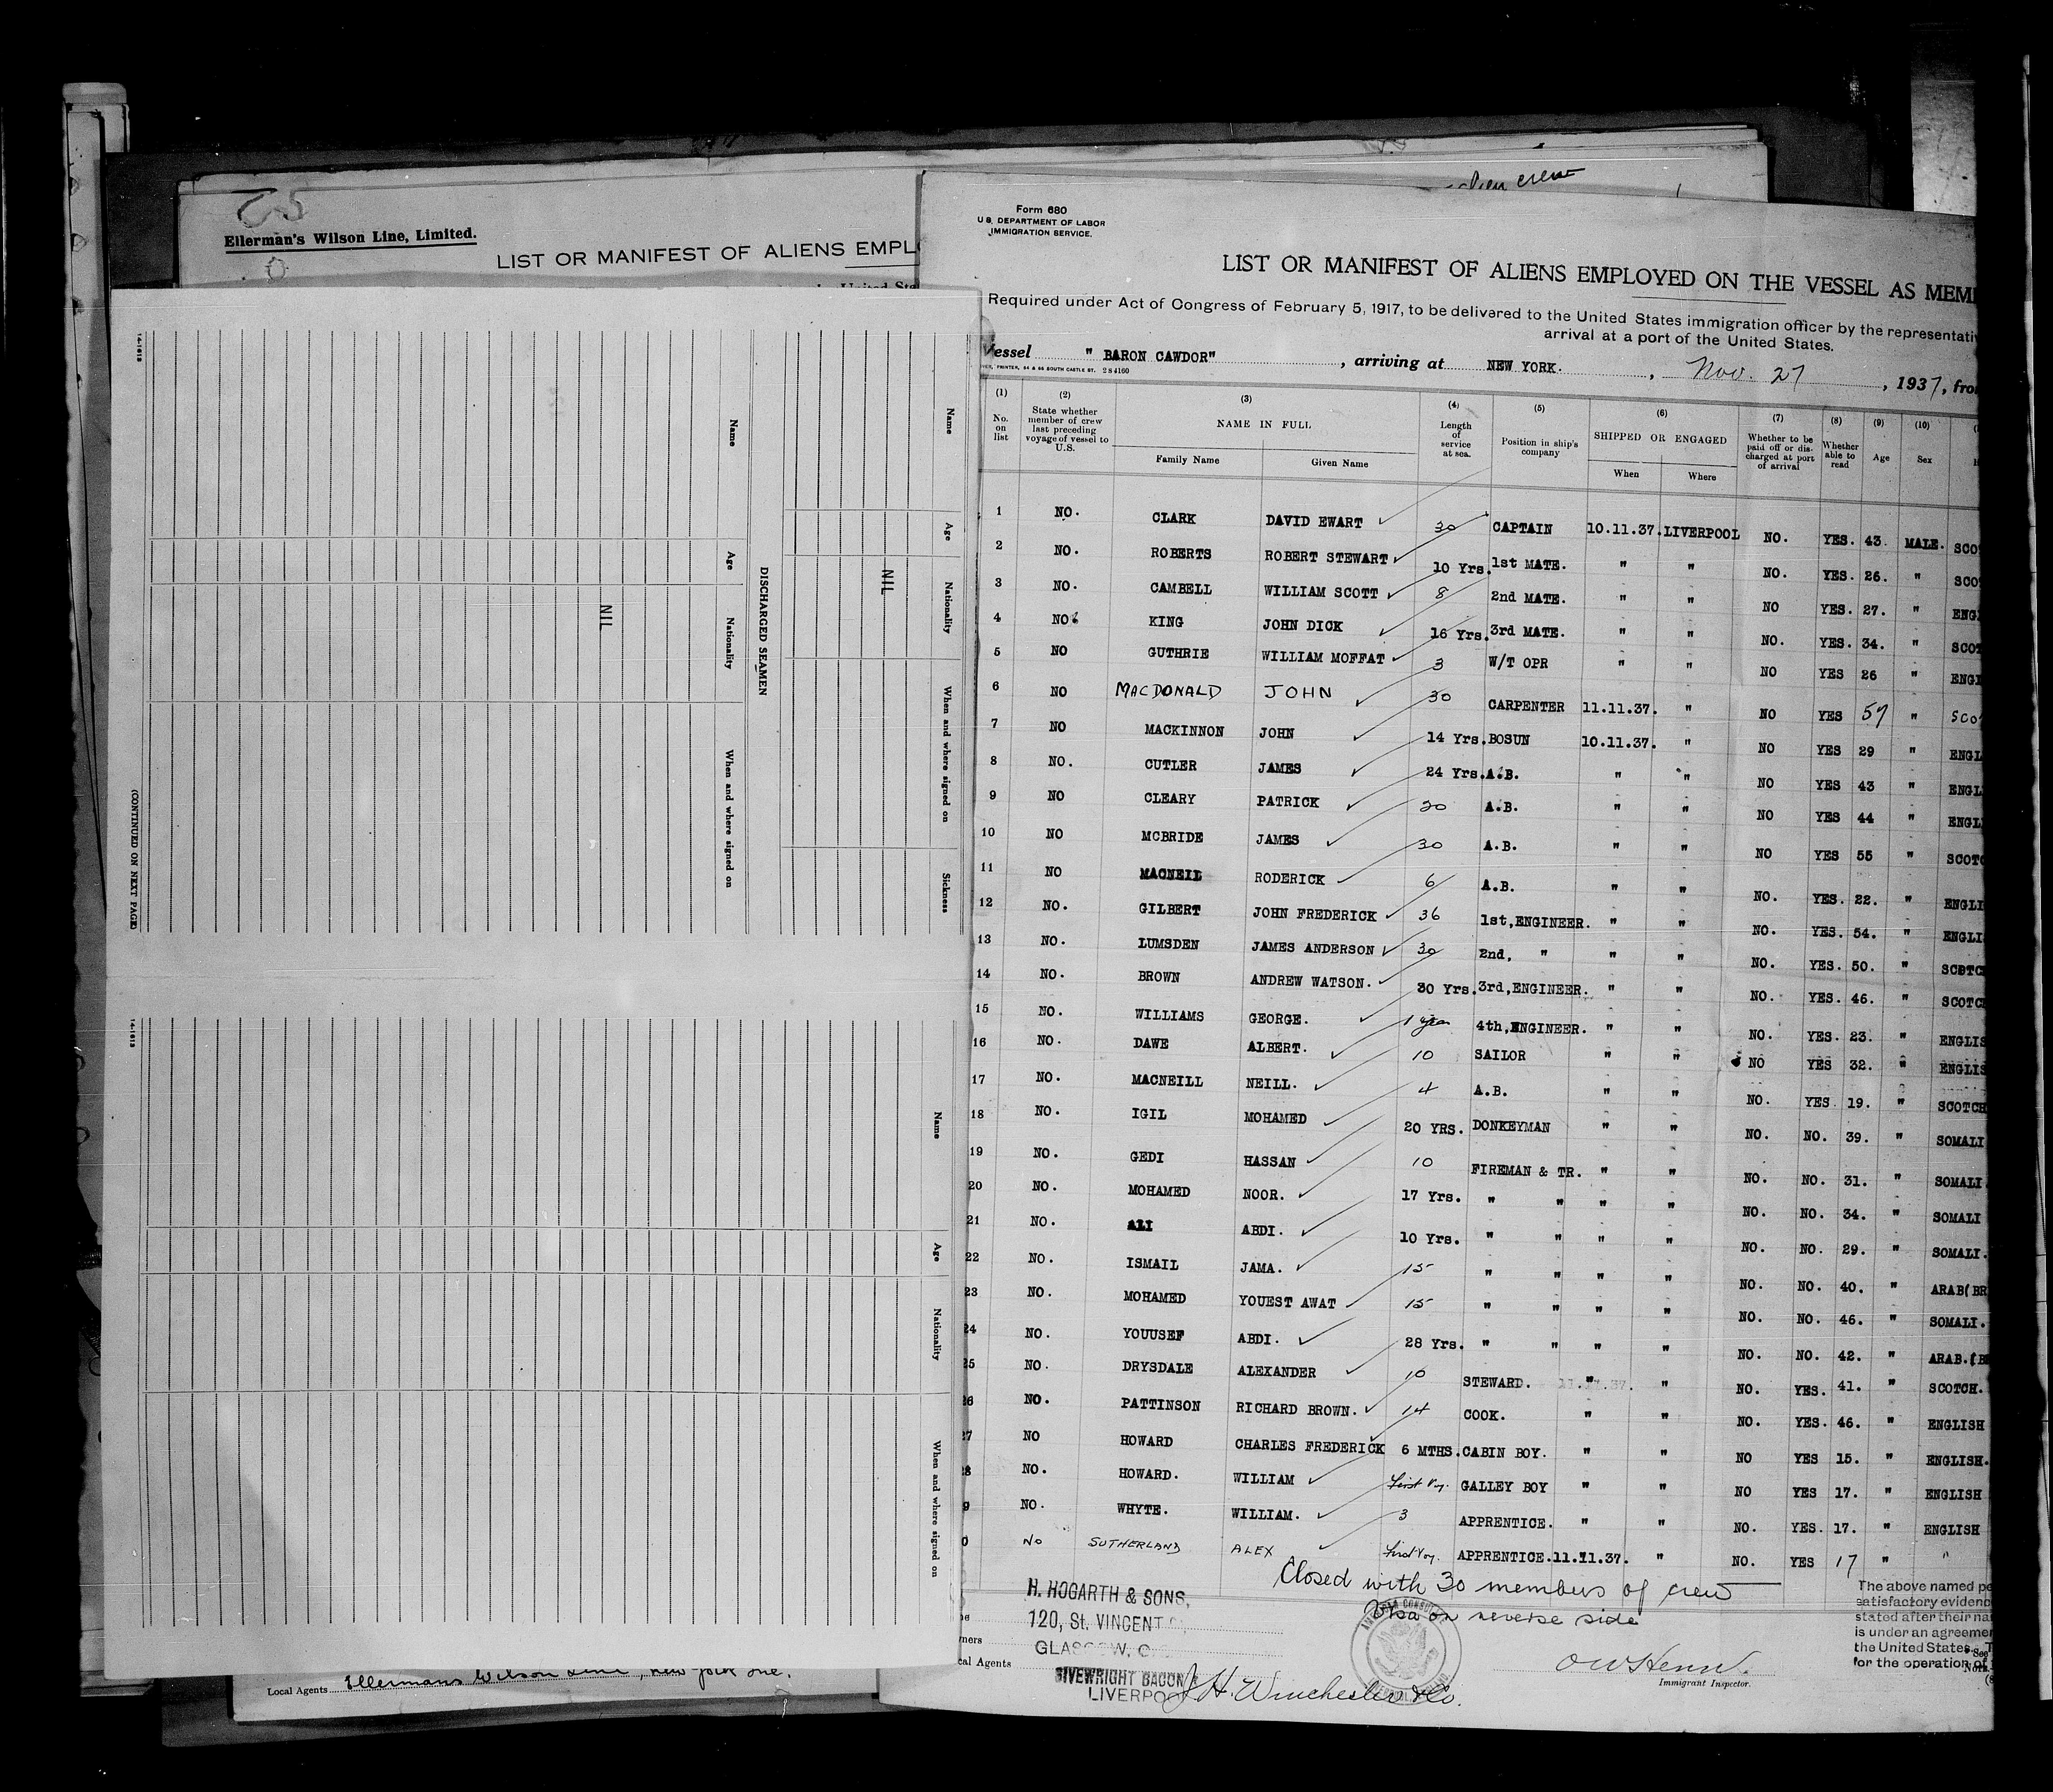 alien crew
Ellerman's Wilson Line, Limited.
LIST OR MANIFEST OF ALIENS EMPL
14-1613
Name
Age
Nationality
When and where signed on
Sickness
NIL
DISCHARGED SEAMEN
Name
Age
Nationality
When and where signed on
NIL
(CONTINUED ON NEXT PAGE)
14-1613
Name
Age
Nationality
When and where signed on
Local Agents Ellermans Wilson Line, New York Inc.
Form 680
U.S. DEPARTMENT OF LABOR
IMMIGRATION SERVICE.
LIST OR MANIFEST OF ALIENS EMPLOYED ON THE VESSEL AS MEM
Required under Act of Congress of February 5, 1917, to be delivered to the United States immigration officer by the representativ
arrival at a port of the United States.
Vessel " BARON CAWDOR" , arriving at NEW YORK. , Nov. 27 , 1937, fro
PRINTER, 54 & 56 SOUTH CASTLE ST. 284160
(1) No. on list (2) State whether member of crew last preceding voyage of vessel to U.S. (3) NAME IN FULL Family Name Given Name (4) Length of service at sea. (5) Position in ship's company (6) SHIPPED OR ENGAGED When Where (7) Whether to be paid off or discharged at port of arrival (8) Whether able to read (9) Age (10) Sex
1 NO. CLARK DAVID EWART 30 CAPTAIN 10.11.37. LIVERPOOL NO. YES. 43. MALE. SCO
2 NO. ROBERTS ROBERT STEWART 10 Yrs. 1st MATE. " " NO. YES. 26. " SCO
3 NO. CAMBELL WILLIAM SCOTT 8 2nd MATE. " " NO YES. 27. " ENG
4 NO KING JOHN DICK 16 Yrs. 3rd MATE. " " NO. YES. 34. " SCOT
5 NO GUTHRIE WILLIAM MOFFAT 3 W/T OPR " " NO YES 26 " ENGI
6 NO MACDONALD JOHN 30 CARPENTER 11.11.37. " NO YES 57 " SCO
7 NO MACKINNON JOHN 14 Yrs. BOSUN 10.11.37. " NO YES 29 " ENGL
8 NO. CUTLER JAMES 24 Yrs. A.B. " " NO YES 43 " ENGL
9 NO CLEARY PATRICK 20 A.B. " " NO YES 44 " ENGL
10 NO MCBRIDE JAMES 30 A.B. " " NO YES 55 " SCOTC
11 NO MACNEIL RODERICK 6 A.B. " " NO. YES. 22. " ENGLI
12 NO. GILBERT JOHN FREDERICK 36 1st,ENGINEER. " " NO. YES. 54. " ENGLI
13 NO. LUMSDEN JAMES ANDERSON 30 2nd, " " " NO. YES. 50. " SCOTC
14 NO. BROWN ANDREW WATSON. 30 Yrs. 3rd,ENGINEER. " " NO. YES. 46. " SCOTCH
15 NO. WILLIAMS GEORGE. 1 year 4th,ENGINEER. " " NO. YES. 23. " ENGLIS
16 NO. DAWE ALBERT. 10 SAILOR " " NO YES 32. " ENGLIS
17 NO. MACNEILL NEILL. 4 A.B. " " NO. YES. 19. " SCOTCH
18 NO. IGIL MOHAMED 20 YRS. DONKEYMAN " " NO. NO. 39. " SOMALI
19 NO. GEDI HASSAN 10 FIREMAN & TR. " " NO. NO. 31. " SOMALI
20 NO. MOHAMED NOOR. 17 Yrs. " " " " NO. NO. 34. " SOMALI
21 NO. ALI ABDI. 10 Yrs. " " " " NO. NO. 29. " SOMALI.
22 NO. ISMAIL JAMA. 15 " " " " NO. NO. 40. " ARAB(BR
23 NO. MOHAMED YOUEST AWAT 15 " " " " NO. NO. 46. " SOMALI.
24 NO. YOUUSEF ABDI. 28 Yrs. " " " " NO. NO. 42. " ARAB.(B
25 NO. DRYSDALE ALEXANDER 10 STEWARD. " " NO. YES. 41. " SCOTCH.
26 NO. PATTINSON RICHARD BROWN. 14 COOK. " " NO. YES. 46. " ENGLISH
27 NO HOWARD CHARLES FREDERICK 6 MTHS. CABIN BOY. " " NO YES 15. " ENGLISH.
28 NO. HOWARD. WILLIAM First Voy. GALLEY BOY " " NO YES 17. " ENGLISH
9 NO. WHYTE. WILLIAM. 3 APPRENTICE. " " NO. YES. 17. " ENGLISH
0 No SUTHERLAND ALEX First Voy. APPRENTICE. 11.11.37. " NO. YES 17 " "
Closed with 30 members of crew
Visa on reverse side
H. HOGARTH & SONS,
120, St. VINCENT
GLASGOW, C.
ners
cal Agents
SIVEWRIGHT BACON
LIVERPOOL
J. H. Winchester & Co.
AMERICAN CONSULATE
Immigrant Inspector.
The above named pe
satisfactory evidenc
stated after their na
is under an agreemen
the United States.
for the operation of